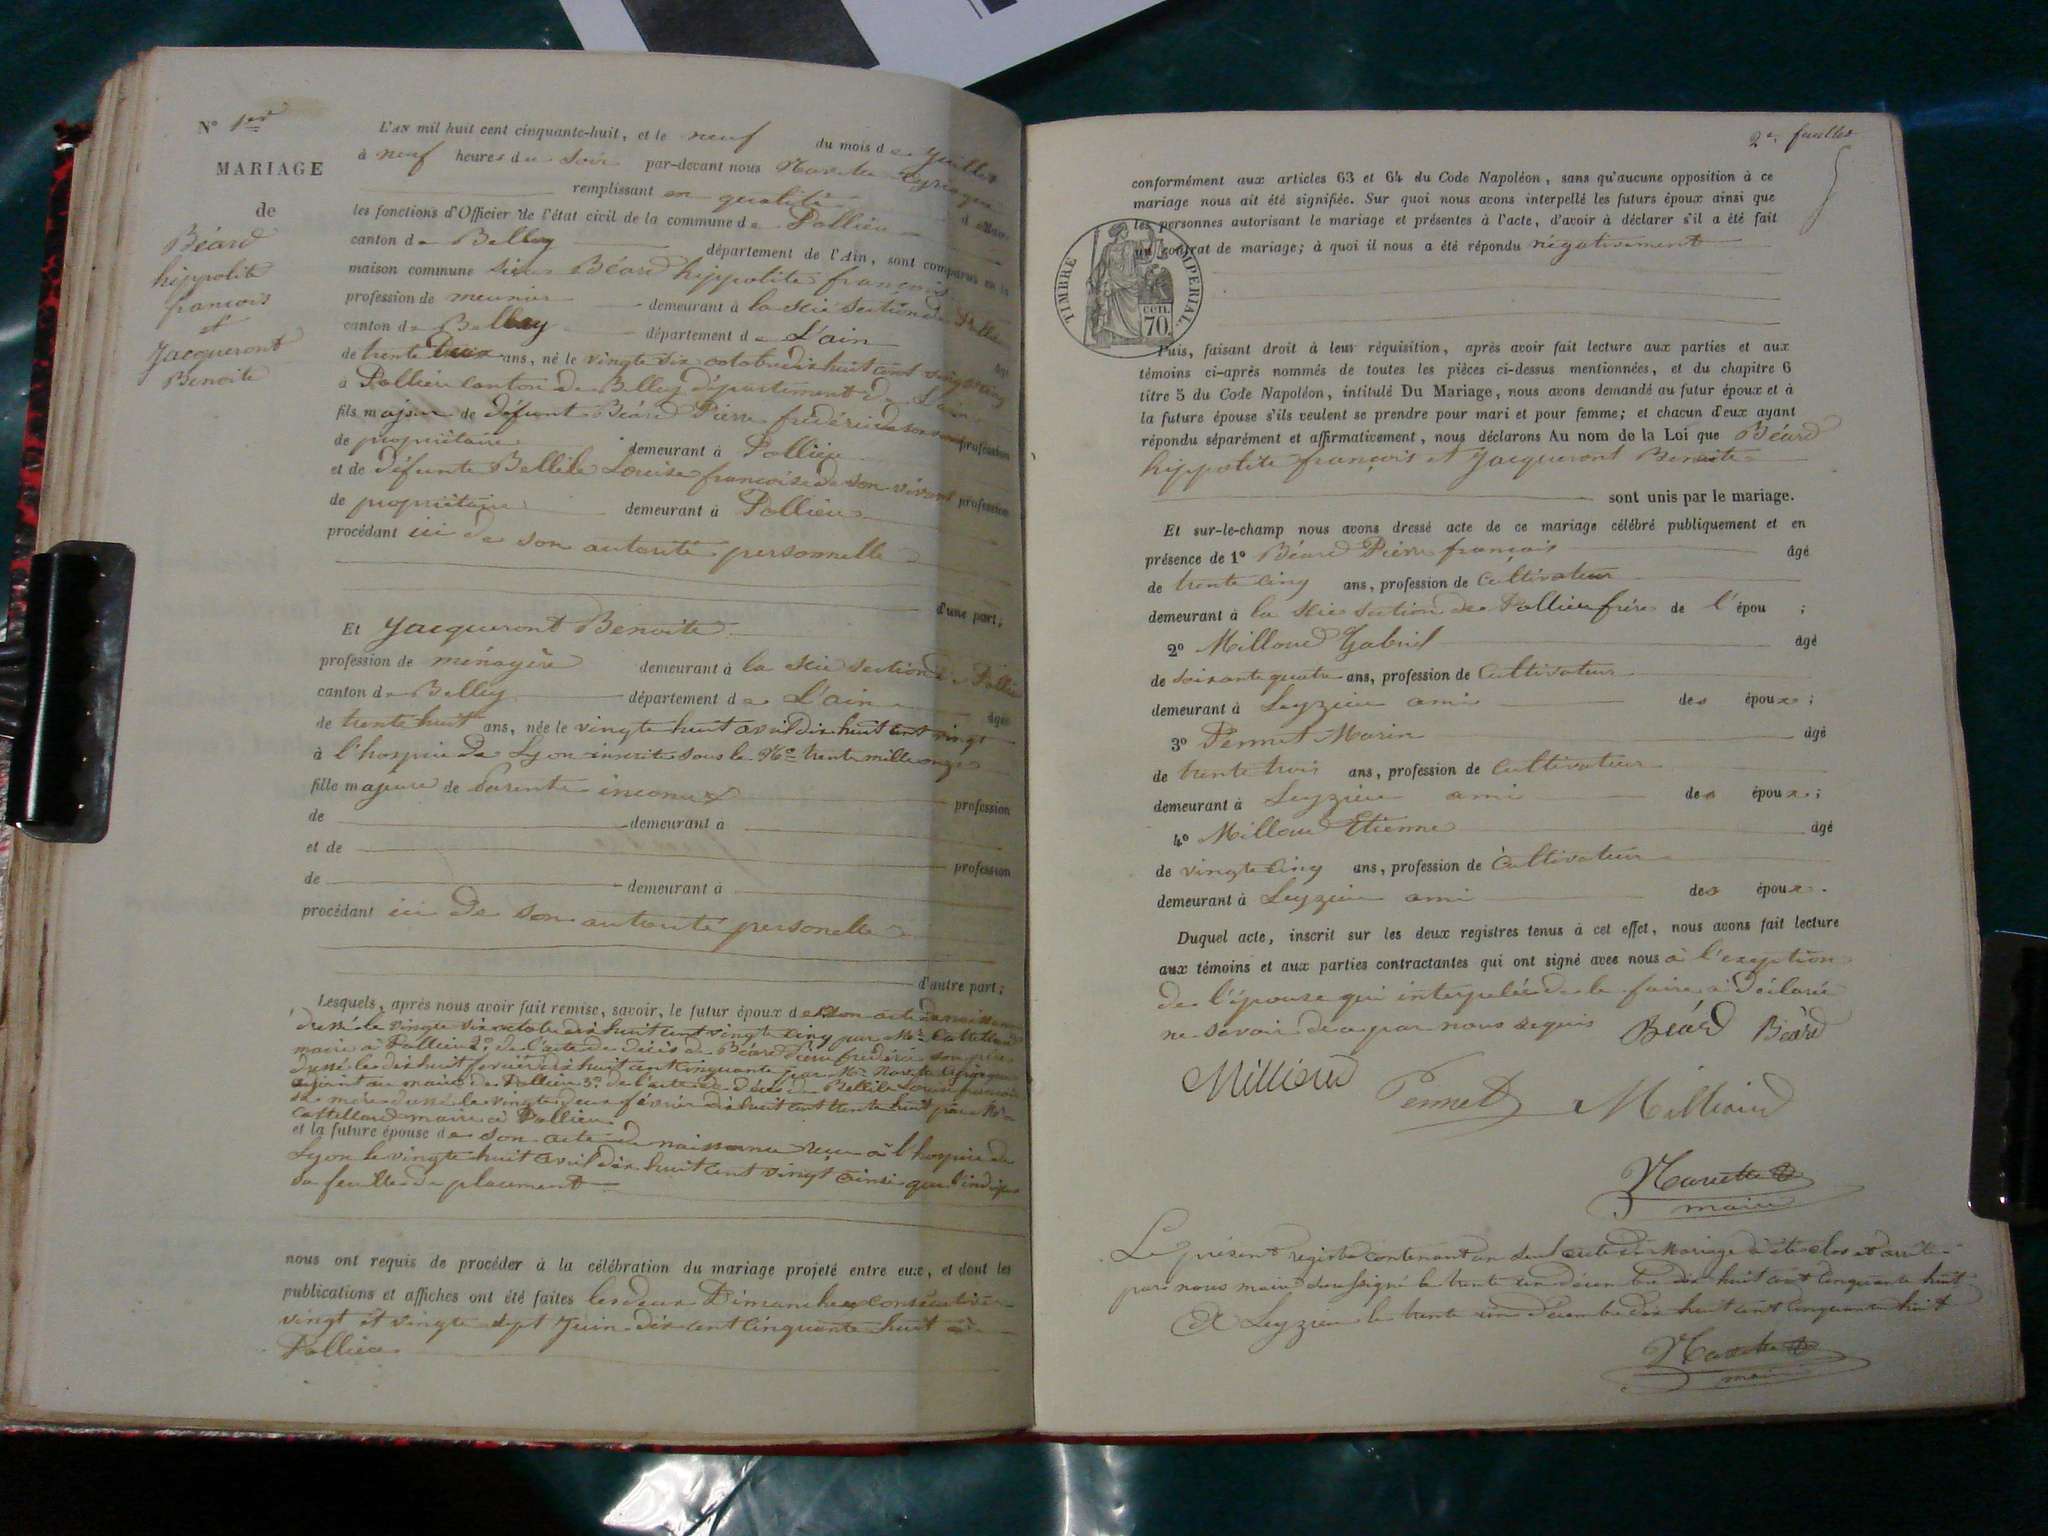 N° 1er
MARIAGE
de
Béard
hippolite
françois
et
Jacqueront
Benoite
L'AN mil huit cent cinquante-huit, et le neuf du mois de Juillet
à neuf heures du soir par-devant nous
remplissant en qualité
les fonctions d'Officier de l'état civil de la commune de Pollieu
canton de Belley département de l'Ain, sont comparus en la
maison commune Béard hippolite françois
profession de meunier demeurant à la scie section de Pollieu
canton de Belley département de L'ain
de trente ans, né le vingte six octobre dix huit cent vingt cinq
à Pollieu canton de Belley département de L'ain
fils majeur de défunt Béard Pierre frédéric de son vivant profession
de propriétaire demeurant à Pollieu
et de défunte Bellile Louise françoise de son vivant profession
de propriétaire demeurant à Pollieu
procédant ici de son autorité personnelle
d'une part;
Et Jacqueront Benoite
profession de ménagère demeurant à la scie section de Pollieu
canton de Belley département de L'ain âgée
de trente huit ans, née le vingte huit avril dix huit cent vingt
à l'hospice de Lyon inscrite sous le No trente mille onze
fille majeure de Parents inconux profession
de demeurant à
et de profession
de demeurant à
procédant ici de son autorité personelle
d'autre part;
Lesquels, après nous avoir fait remise, savoir, le futur époux de son acte de naissance
dressé le vingte six octobre dix huit cent vingte cinq par Mr
maire à Pollieu 2° de l'acte de décès de Béard Pierre frédéric son père
dressé le dix huit février dix huit cent cinquante par Mr
adjoint au maire de Pollieu 3° de l'acte de décès de Bellile Louise françoise
sa mère dressé le vingte deux février dix huit cent trente huit par Mr
maire à Pollieu
et la future épouse de son acte de naissance reçu à l'hospice de
Lyon le vingte huit avril dix huit cent vingt ainsi que l'indique
sa feuille de placement
nous ont requis de procéder à la célébration du mariage projeté entre eux, et dont les
publications et affiches ont été faites les deux Dimanches consécutives
vingt et vingte sept Juin dix cent cinquante huit à
Pollieu
2e feuillet
conformément aux articles 63 et 64 du Code Napoléon, sans qu'aucune opposition à ce
mariage nous ait été signifiée. Sur quoi nous avons interpellé les futurs époux ainsi que
les personnes autorisant le mariage et présentes à l'acte, d'avoir à déclarer s'il a été fait
un contrat de mariage; à quoi il nous a été répondu négativement
TIMBRE IMPERIAL.
CEN.
70
Puis, faisant droit à leur réquisition, après avoir fait lecture aux parties et aux
témoins ci-après nommés de toutes les pièces ci-dessus mentionnées, et du chapitre 6
titre 5 du Code Napoléon, intitulé Du Mariage, nous avons demandé au futur époux et à
la future épouse s'ils veulent se prendre pour mari et pour femme; et chacun d'eux ayant
répondu séparément et affirmativement, nous déclarons Au nom de la Loi que Béard
hippolite françois et Jacqueront Benoite
sont unis par le mariage.
Et sur-le-champ nous avons dressé acte de ce mariage célébré publiquement et en
présence de 1° Béard Pierre françois âgé
de trente cinq ans, profession de Cultivateur
demeurant à la scie section de Pollieu frère de l'épou ;
2° Milloud Gabriel âgé
de soixante quatre ans, profession de Cultivateur
demeurant à Leyzieu ami des époux ;
3° Pernet Marin âgé
de trente trois ans, profession de Cultivateur
demeurant à Leyzieu ami des époux ;
4° Milloud Etienne âgé
de vingte cinq ans, profession de Cultivateur
demeurant à Leyzieu ami des époux .
Duquel acte, inscrit sur les deux registres tenus à cet effet, nous avons fait lecture
aux témoins et aux parties contractantes qui ont signé avec nous à l'exeption
de l'épouse qui interpelée de le faire a déclarée
ne savoir de a par nous requis Béard Béard
Millioud Pernet Millioud
maire
Le présent registre contenant un seul acte de Mariage a été clos et arrêté
par nous maire soussigné le trente un décembre dix huit cent cinquante huit
A Leyzieu le trente un décembre dix huit cent cinquante huit
maire